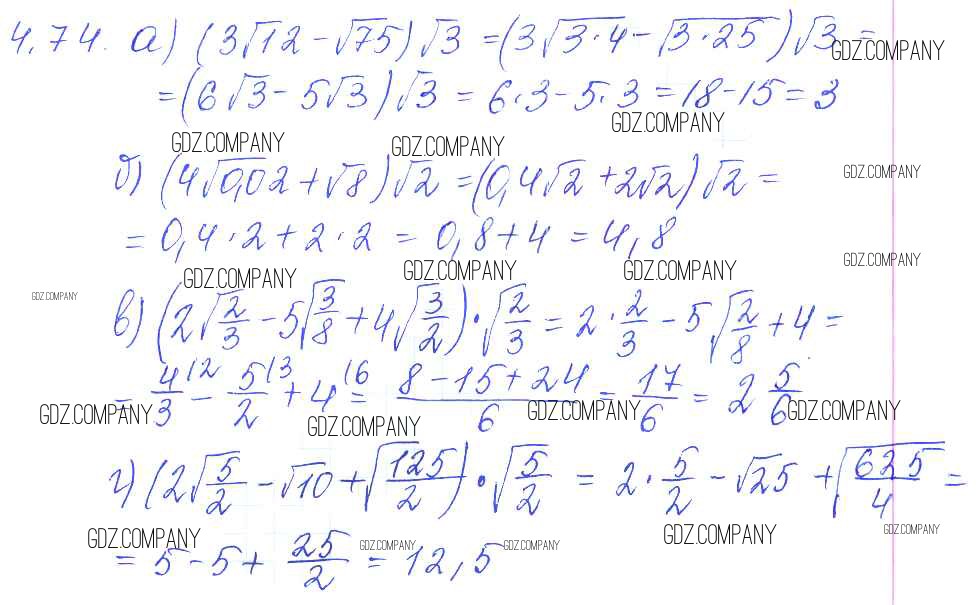 4.74. а) (3√12 - √75)√3 = (3√(3·4) - √(3·25))√3 =
GDZ.COMPANY
= (6√3 - 5√3)√3 = 6·3 - 5·3 = 18 - 15 = 3
GDZ.COMPANY
GDZ.COMPANY GDZ.COMPANY
б) (4√0,02 + √8)√2 = (0,4√2 + 2√2)√2 =
GDZ.COMPANY
= 0,4·2 + 2·2 = 0,8 + 4 = 4,8
GDZ.COMPANY
GDZ.COMPANY GDZ.COMPANY GDZ.COMPANY
GDZ.COMPANY
в) (2√(2/3) - 5√(3/8) + 4√(3/2))·√(2/3) = 2·2/3 - 5√(2/8) + 4 =
= 4/3 (2 - 5/2 (3 + 4 (6 = (8 - 15 + 24)/6 = 17/6 = 2 5/6
GDZ.COMPANY GDZ.COMPANY GDZ.COMPANY GDZ.COMPANY
г) (2√(5/2) - √10 + √(125/2))·√(5/2) = 2·5/2 - √25 + √(625/4) =
GDZ.COMPANY GDZ.COMPANY GDZ.COMPANY
= 5 - 5 + 25/2 = 12,5
GDZ.COMPANY GDZ.COMPANY